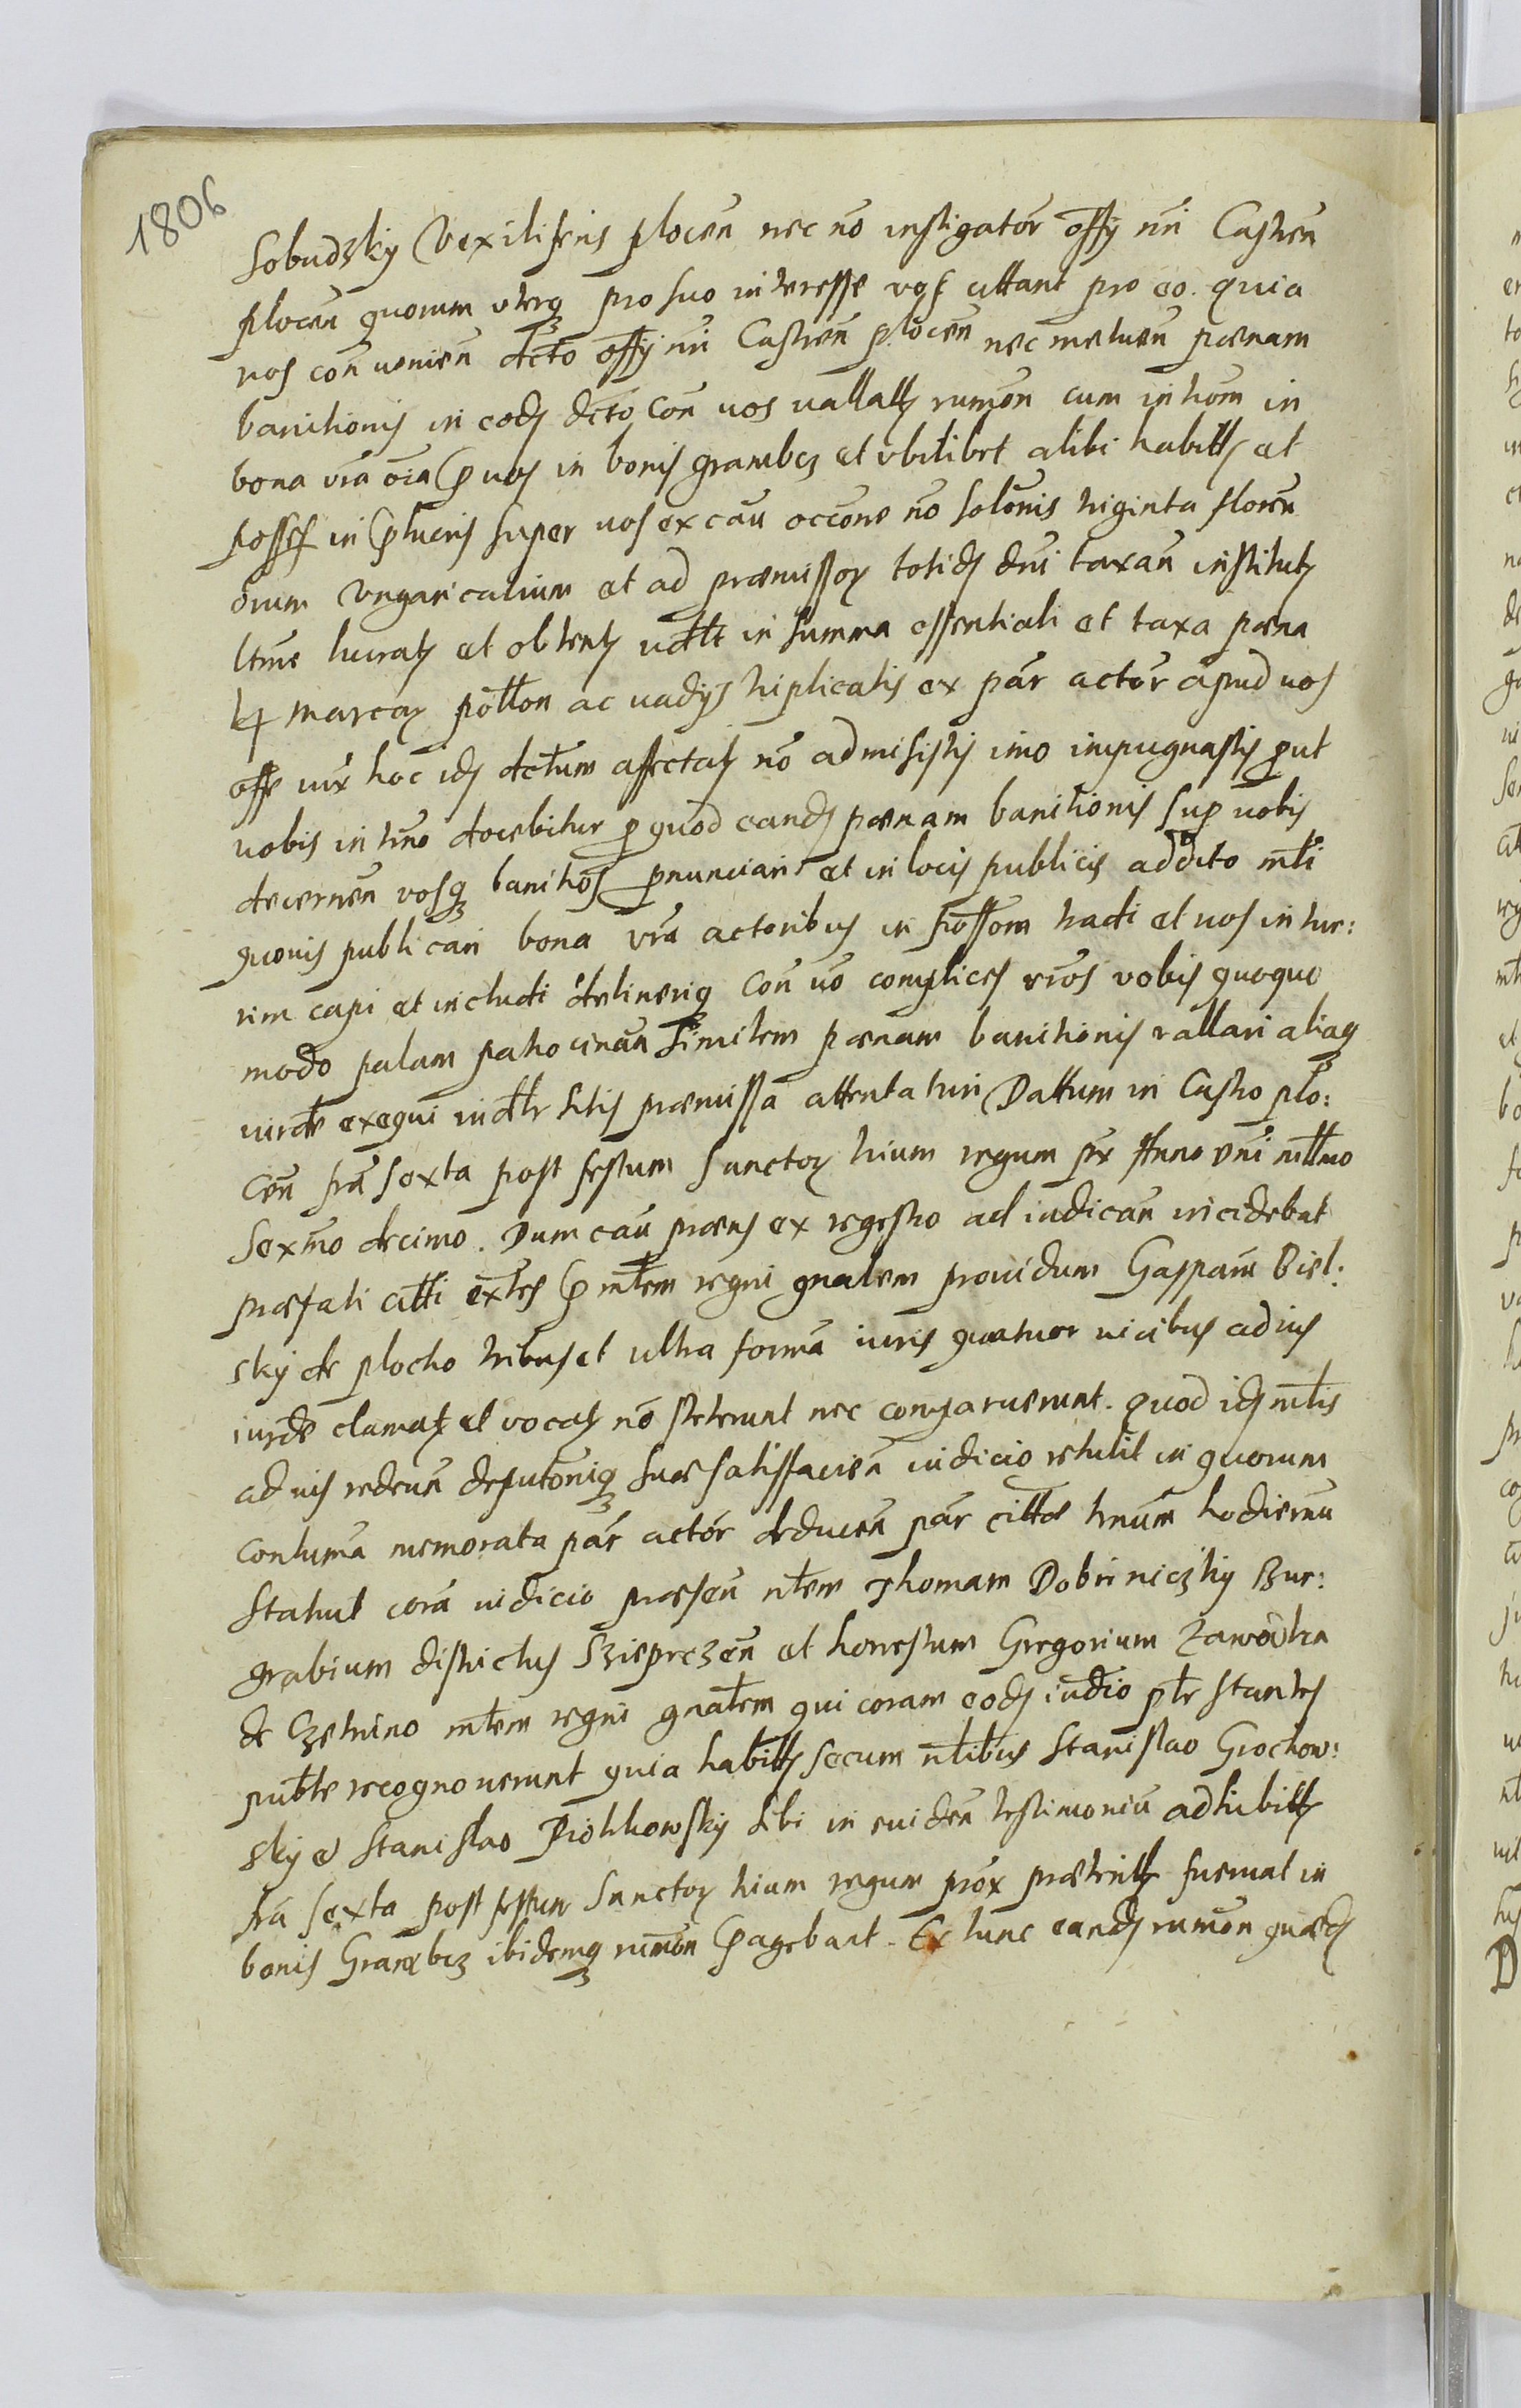 1806
Sobudzky Vexiliferis plocen̄ nec nō instigatōr offÿ nr̄i Castren̄
plocen̄ quorum vterq pro suo interesse vos cittant pro eo. quia
vos conuenien̄ dcto offÿ nr̄i Castren̄ plocen̄ nec metuen̄ pœnam
banitionis in eodȝ dcto con̄ vos uallatȝ rumōn cum introm̄ in
bona vr̄a oīa p vos in bonis grambcz et vbilibet alibi habittȝ et
possess in plucris super vos ex cau occone nō solonis triginta floren̄
orum vngaricalium et ad præmissoȝ totidȝ dni taxan̄ institutȝ
ltme lucratȝ et obtentȝ vdtt in summa essentiali et taxa pœna
marcaȝ potton ac vadÿs triplicatis ex pār actōr apud vos
offe iux hoc idȝ dctum affectatȝ nō admisistis imo impugnastis put
vobis in tmo docebitur p quod candȝ pœnam banitionis sup vobis
decernen̄ vosq banitos pnunciari et in locis publicis addito mlti
quonis publicari bona vr̄a actoribus in possom̄ tradi et vos in tur:
rim capi et includi detineriq con̄ vō complices vr̄os vobis quoquo
modo palam patrocinan̄ similem pœnam banitionis vallari aliaq
iurde exequi indtr sitis præmissa attentaturi Dattum in Castro plo:
cen̄ fr̄a sexta post festum sanctoȝ trium regum px Anno dni mtt̄mo
sexmo decimo. Dum cau præns ex regestro ad iudican̄ incidebat
præfati citti extes p mtem regni gnalem prouidum Gasparū Biel:
sky de plocko tribus et ultra formā iuris quatuor vicibus ad ius
iurde clamatȝ et vocatȝ nō steterunt nec comparuerunt. quod idȝ mtis
ad ius redeun̄ deputoniq suæ satisfacien̄ iudicio retulit in quorum
contuma memorata pār actōr deducen̄ pār cittæ tm̄um hodiernū
statuit corā iudicio præsen̄ ntem Thomam Dobrniczky Bur:
grabium districtus Szieprczen̄ et honestum Gregorium Zawodka
de Czetrino mtem regni gnatem qui coram eodȝ iudio ptr stantes
pubte recognouerunt quia habittȝ secum ntibus Stanislao Grochow:
sky et Stanislao Piotrkowsky sibi in euiden̄ testimoniū adhibittȝ
fr̄a sexta post festum sanctoȝ trium regum prox præteritȝ fuerunt in
bonis Grambcz ibidemq rumon̄ pagebant. Ex tunc eandȝ rumon̄ quædȝ